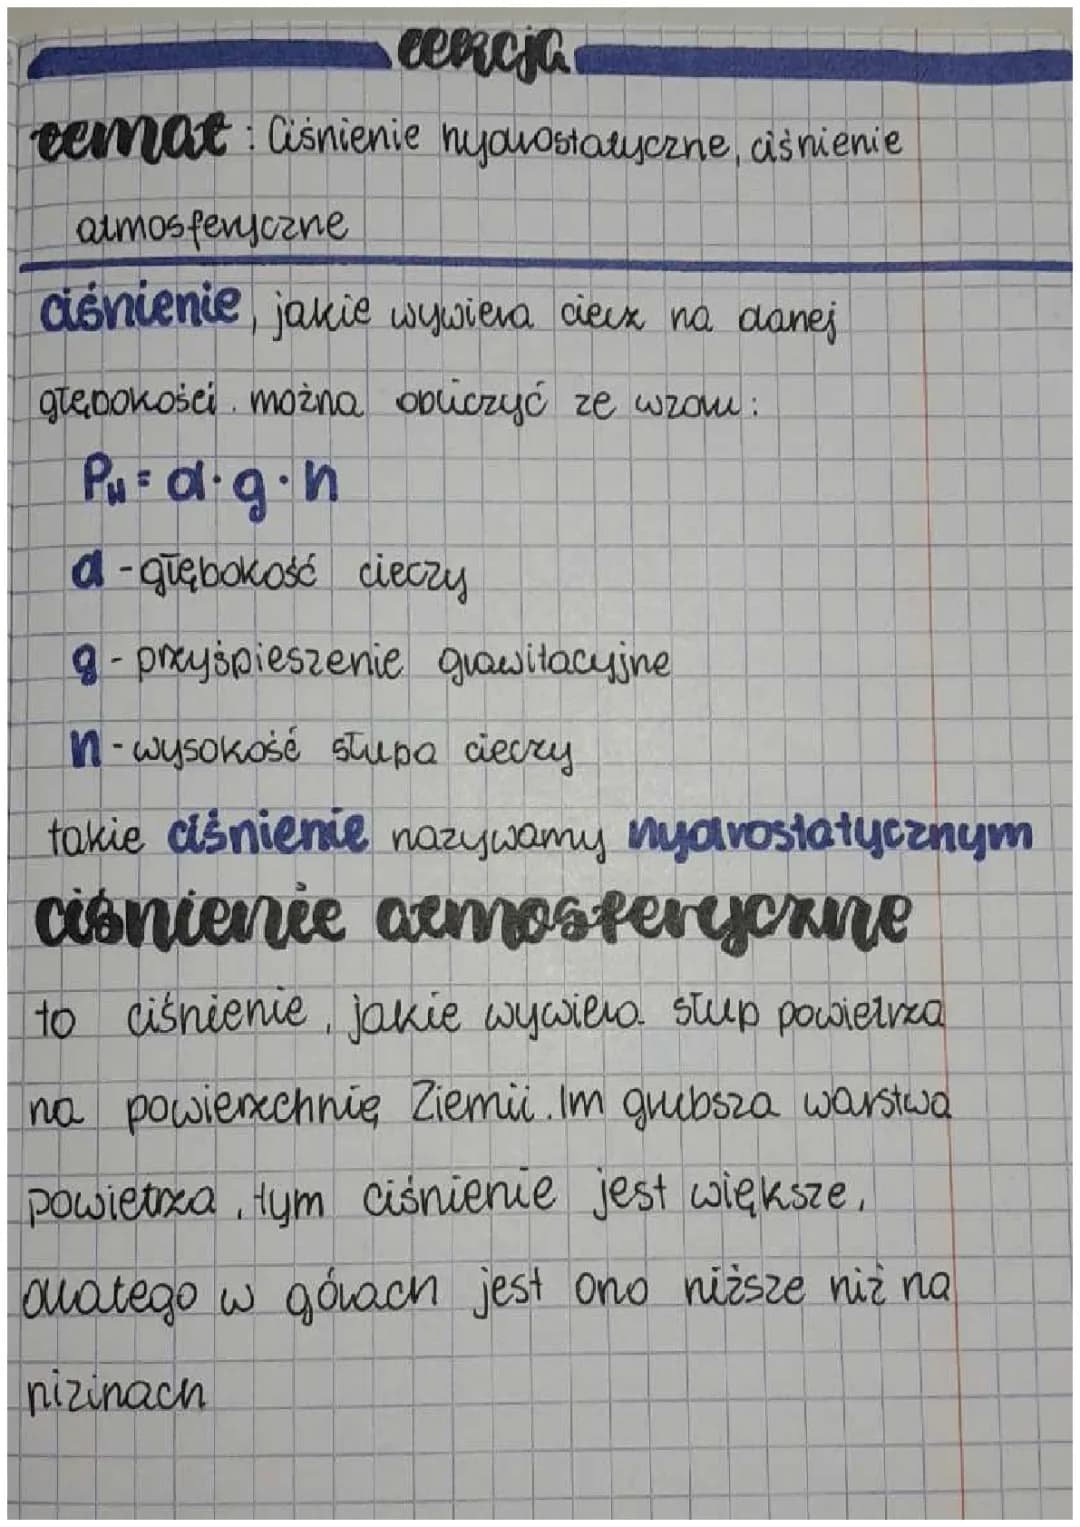 lekcja
temat: Ciśnienie hydrostatyczne, ciśnienie
atmosferyczne
ciśnienie, jakie wywiera ciecz na danej
głębokości, można obliczyć ze wzoru:
PH = d·g·h
d - głębokość cieczy
g - przyśpieszenie grawitacyjne
h - wysokość słupa cieczy
takie ciśnienie nazywamy hydrostatycznym
ciśnienie atmosferyczne
to ciśnienie, jakie wywiera słup powietrza
na powierzchnię Ziemii. Im grubsza warstwa
powietrza, tym ciśnienie jest większe,
dlatego w górach jest ono niższe niż na
nizinach